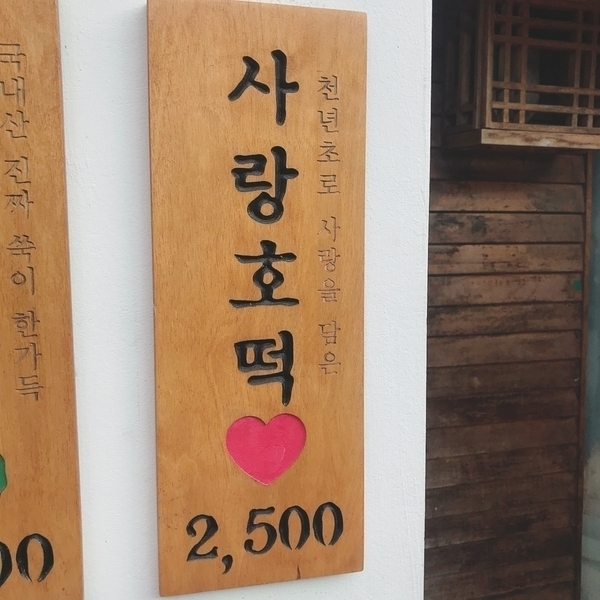 국내산 진짜 쑥이 한가득
00
천년초로 사랑을 담은
사랑호떡
2,500